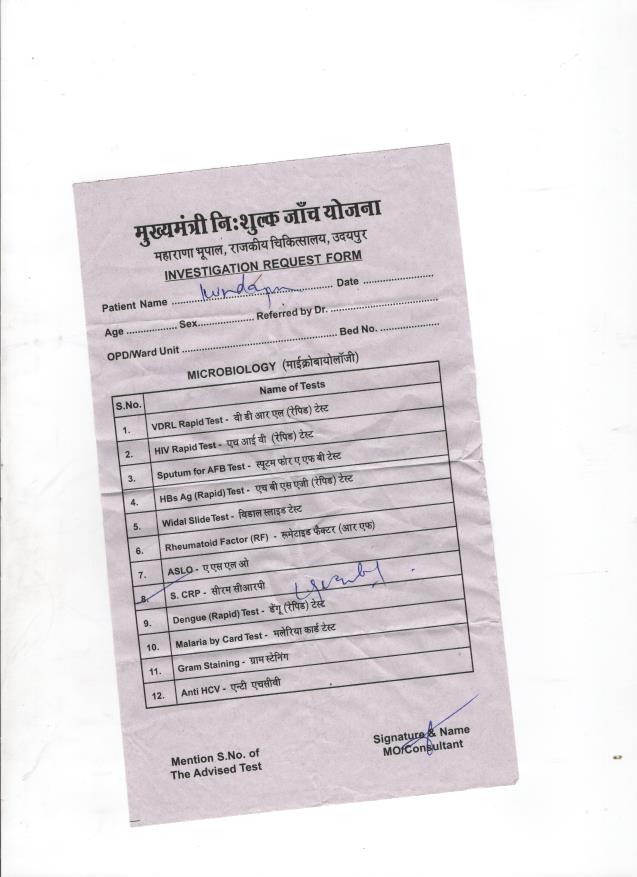 मुख्यमंत्री निःशुल्क जाँच योजना
महाराणा भूपाल, राजकीय चिकित्सालय, उदयपुर
INVESTIGATION REQUEST FORM
Patient Name .................................................. Date ......................
Age ................ Sex.................. Referred by Dr. ..................................
OPD/Ward Unit .................................................. Bed No. ...................
MICROBIOLOGY (माईक्रोबायोलॉजी)
S.No. Name of Tests
1. VDRL Rapid Test - वी डी आर एल (रेपिड) टेस्ट
2. HIV Rapid Test - एच आई वी (रेपिड) टेस्ट
3. Sputum for AFB Test - स्पूटम फोर ए एफ बी टेस्ट
4. HBs Ag (Rapid) Test - एच बी एस एजी (रेपिड) टेस्ट
5. Widal Slide Test - विडाल स्लाइड टेस्ट
6. Rheumatoid Factor (RF) - रूमेटाइड फैक्टर (आर एफ)
7. ASLO - ए एस एल ओ
8. S. CRP - सीरम सीआरपी
9. Dengue (Rapid) Test - डेंगू (रेपिड) टेस्ट
10. Malaria by Card Test - मलेरिया कार्ड टेस्ट
11. Gram Staining - ग्राम स्टेनिंग
12. Anti HCV - एन्टी एचसीवी
Mention S.No. of
The Advised Test
Signature & Name
MO/Consultant